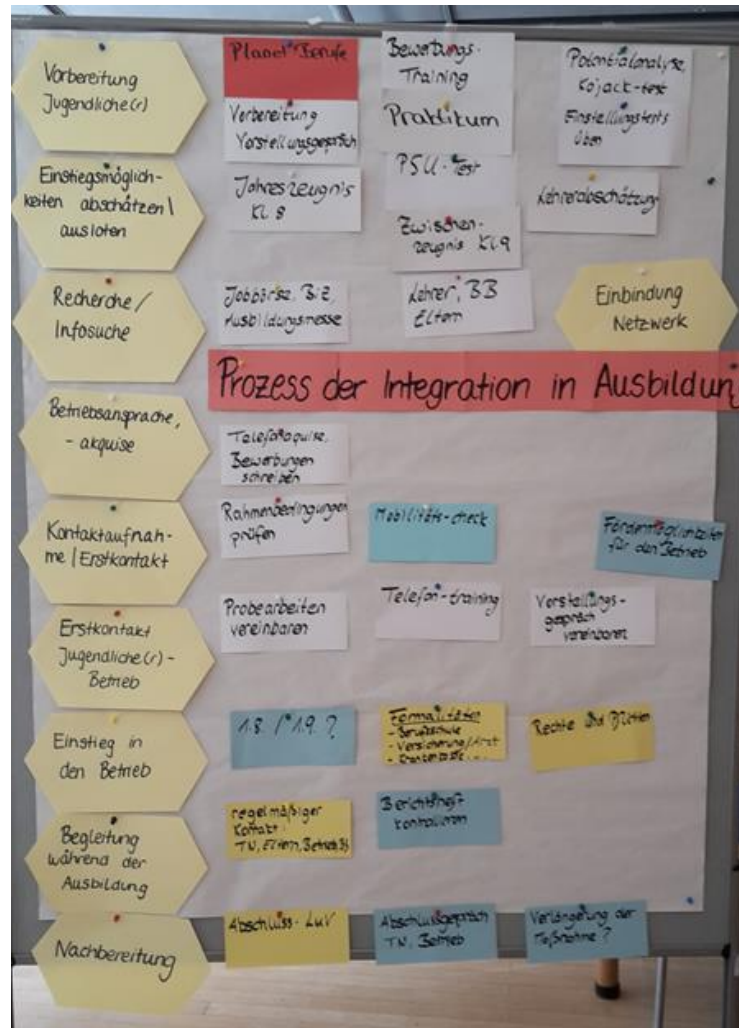 Vorbereitung
Jugendliche(r)
Planet Berufe
Bewerbungs-
Training
Potentialanalyse,
Kojack-test
Vorbereitung
Vorstellungsgespräch
Praktikum
Einstellungstests
üben
Einstiegsmöglich-
keiten abschätzen/
ausloten
Jahreszeugnis
Kl. 8
PSU-Test
Zwischen-
zeugnis Kl. 9
Lehrerabschätzung
Recherche/
Infosuche
Jobbörse, BiZ,
Ausbildungsmesse
Lehrer, BB
Eltern
Einbindung
Netzwerk
Prozess der Integration in Ausbildun
Betriebsansprache,
- akquise
Telefonaquise,
Bewerbungen
schreiben
Kontaktaufnah-
me / Erstkontakt
Rahmenbedingungen
prüfen
Mobilitäts-check
Fördermöglichkeiten
für den Betrieb
Erstkontakt
Jugendliche(r) -
Betrieb
Probearbeiten
vereinbaren
Telefon-training
Vorstellungs-
gespräch
vereinbaren
Einstieg in
den Betrieb
1.8. / 1.9. ?
Formalitäten
- Berufsschule
- Versicherung/Arzt
- Krankenkasse ...
Rechte und Pflichten
Begleitung
während der
Ausbildung
regelmäßiger
Kontakt:
TN, Eltern, Betrieb, BS
Berichtsheft
kontrollieren
Nachbereitung
Abschluss- LuV
Abschlussgespräch
TN, Betrieb
Verlängerung der
Maßnahme ?